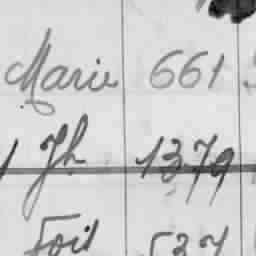 Marie 661
Jh 1379
Foit 537